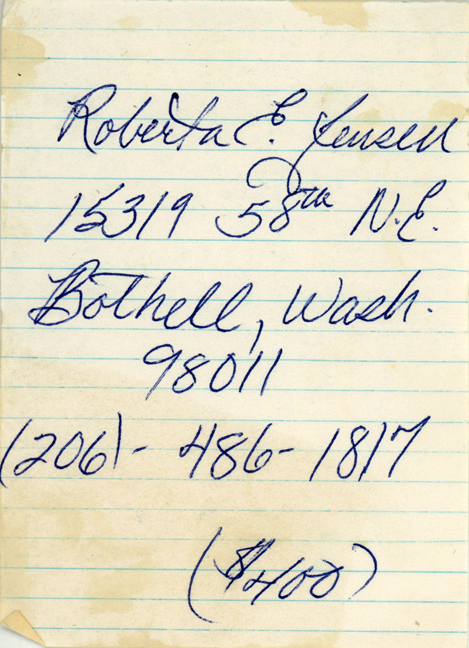 Roberta E. Jensen
15319 58th N.E.
Bothell, Wash.
98011
(206)-486-1817
($400)